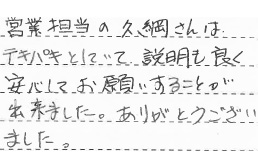 営業担当の久綱さんは
テキパキとしていて 説明も良く
安心してお願いすることが
出来ました。ありがとうござい
ました。